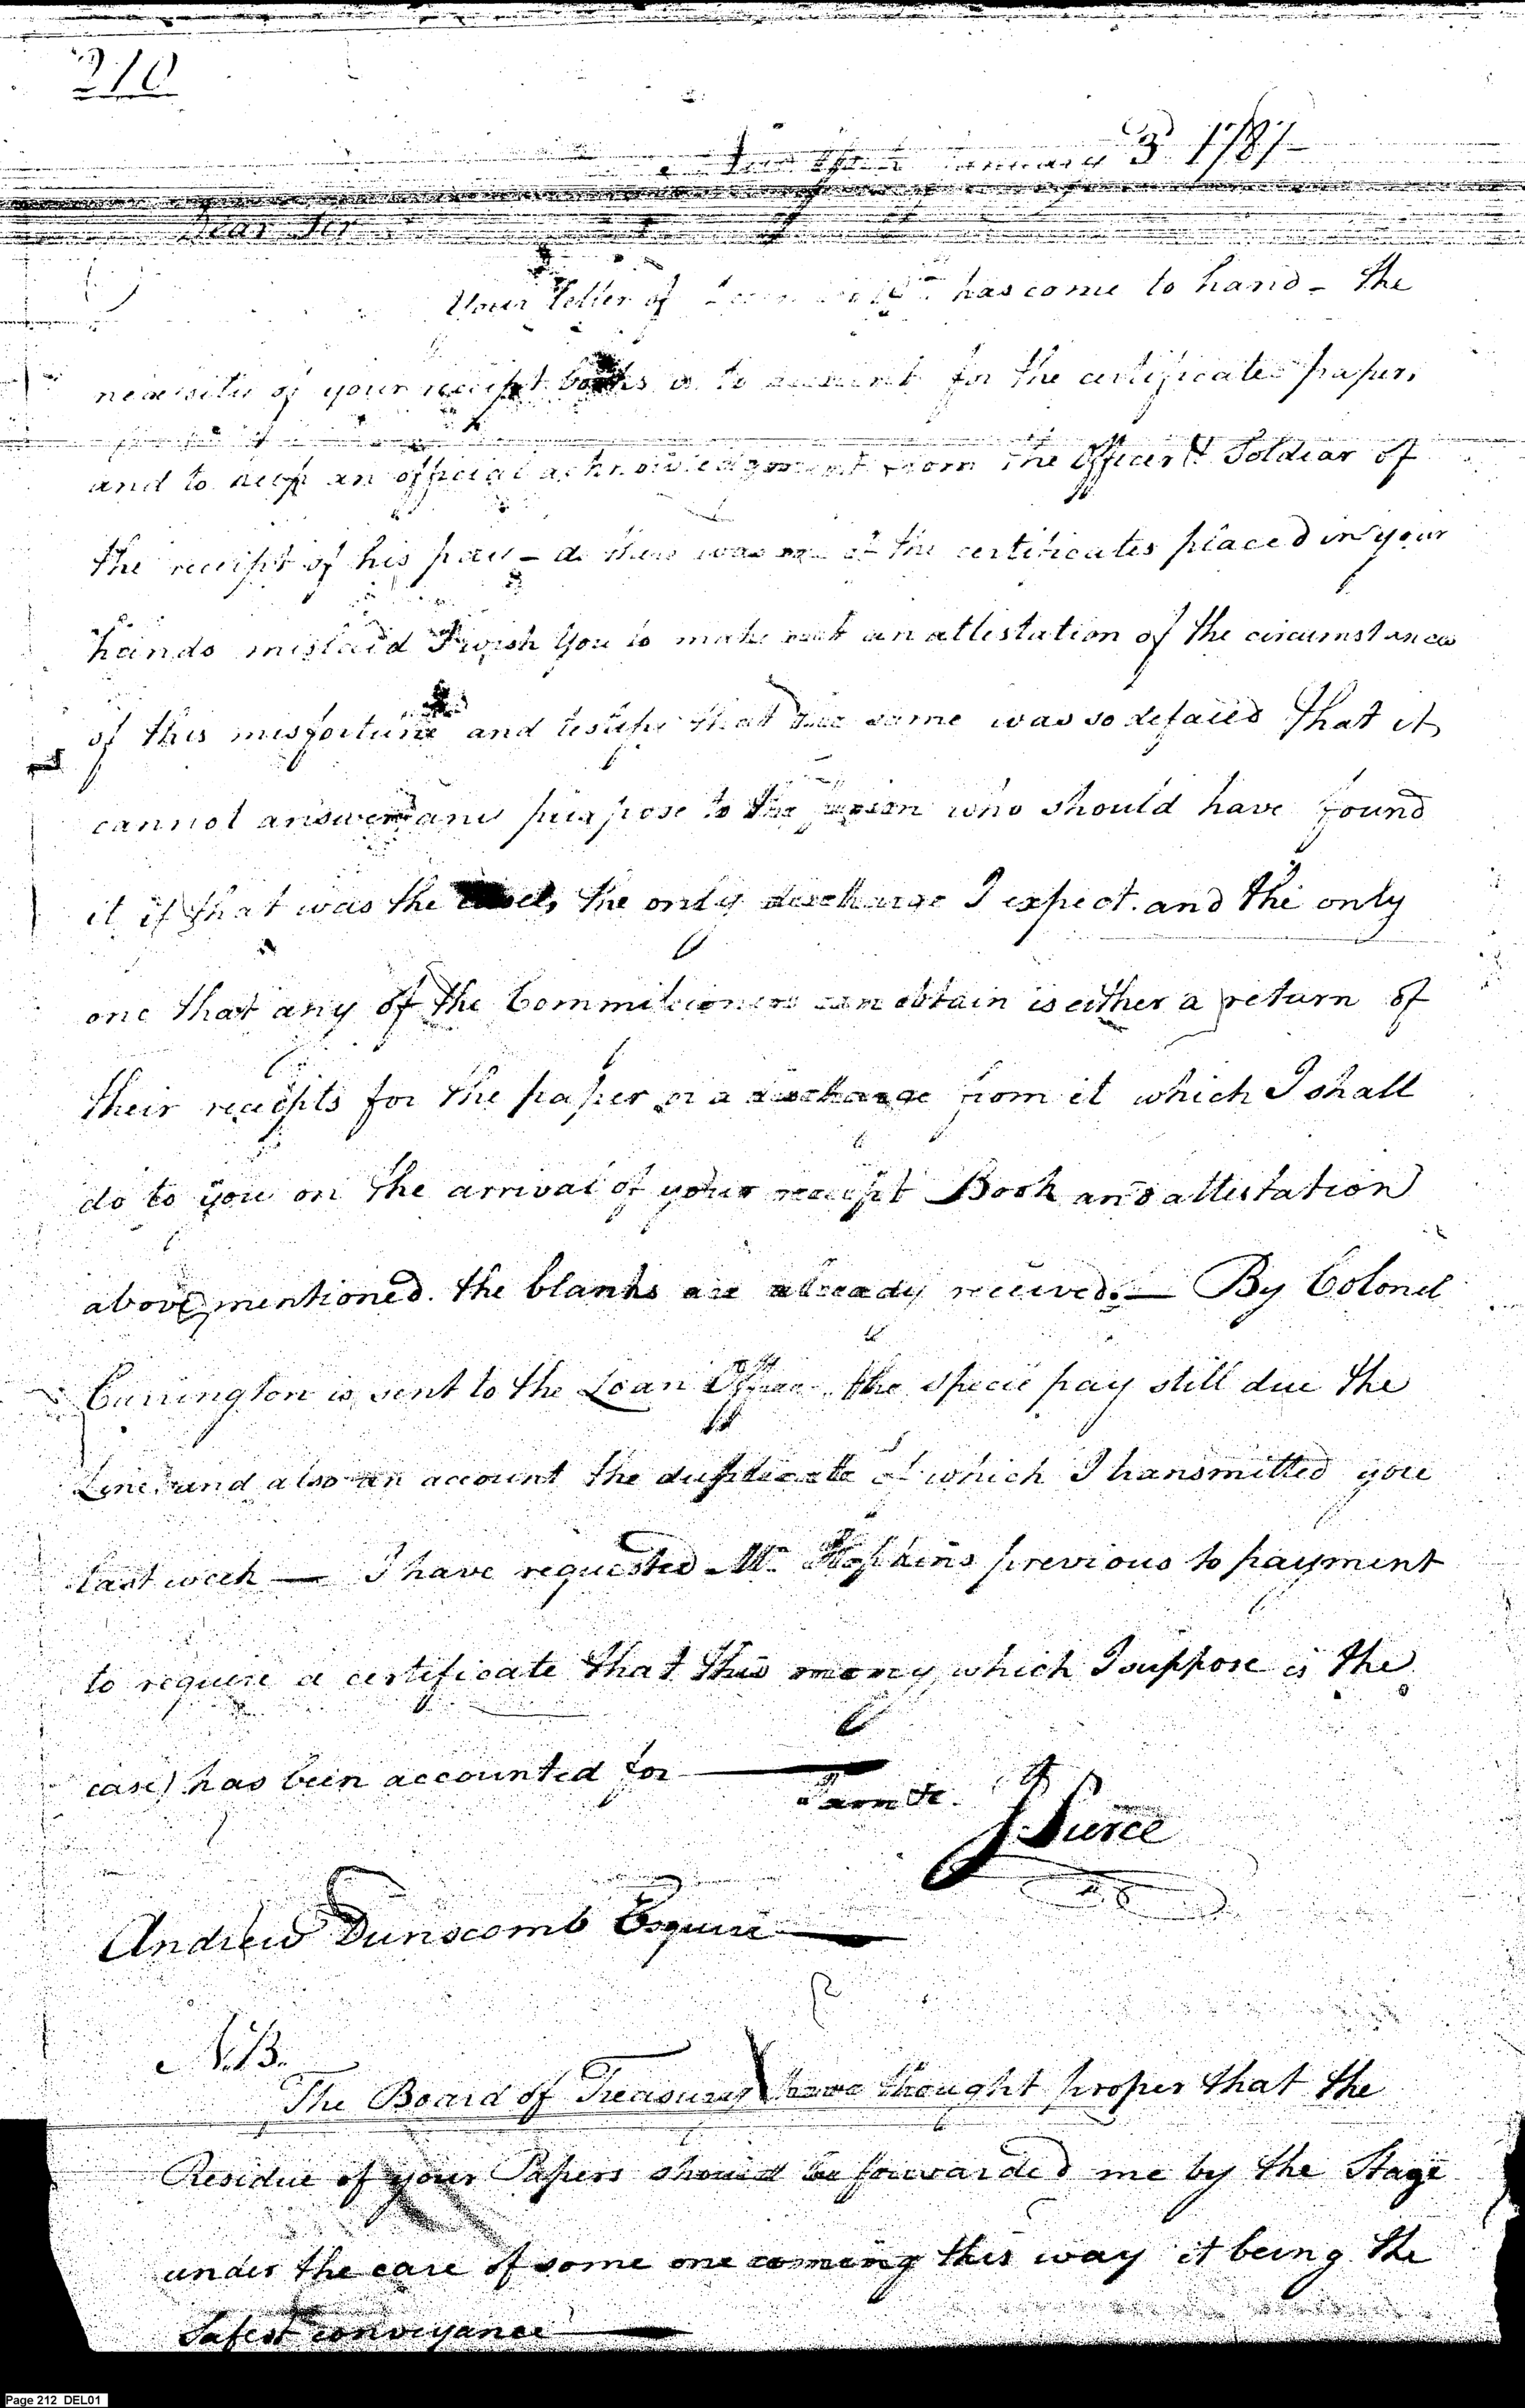 210
January 3 1787
Dear Sir
Your Letter of has come to hand - the
necessity of your receipt books is to account for the certificate paper,
and to keep an official acknowledgment from the Officer & Soldiar of
the receipt of his pay - as there was one of the certificates placed in your
hands mislaid I wish You to make out an attestation of the circumstances
of this misfortune and testify that the same was so defaced that it
cannot answer any purpose to the person who should have found
it if that was the case, the only discharge I expect. and the only
one that any of the Commissioners can obtain is either a return of
their receipts for the paper or a discharge from it which I shall
do to you on the arrival of your receipt Book and attestation
above mentioned. the blanks are already received. — By Colonel
Carrington is sent to the Loan Office the specie pay still due the
Line, and also an account the duplicate of which I transmitted you
last week — I have requested Mr. Hopkins previous to payment
to require a certificate that this money, which I suppose is the
case) has been accounted for —
I am &c.
J Pierce
Andrew Dunscomb Esquire
N.B.
The Board of Treasury have thought proper that the
Residue of your Papers should be forwarded me by the Stage
under the care of some one coming this way it being the
Safest conveyance
Page 212 DEL01